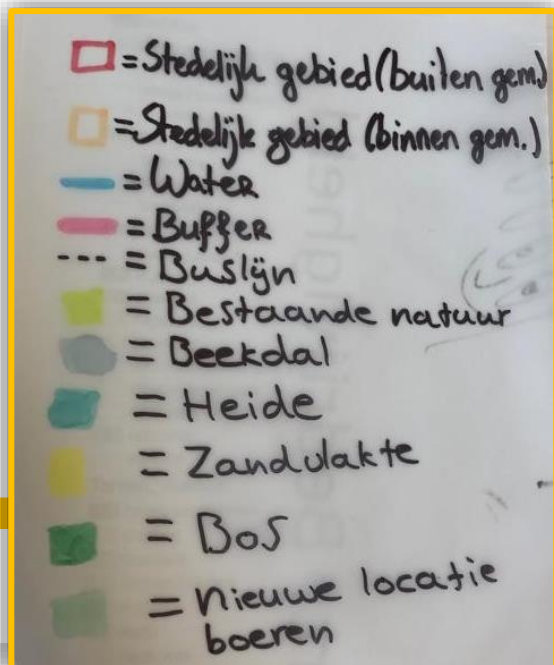 = Stedelijk gebied (buiten gem.)
= Stedelijk gebied (binnen gem.)
= Water
= Buffer
= Buslijn
= Bestaande natuur
= Beekdal
= Heide
= Zandvlakte
= Bos
= nieuwe locatie
boeren